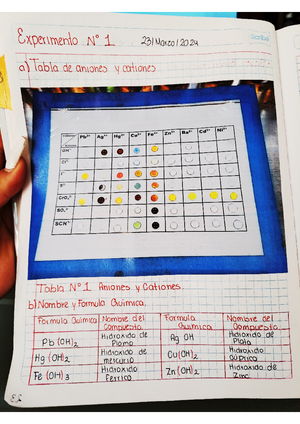 Experimento N° 1
23/Marzo/2024
a) Tabla de aniones y cationes
Pb²⁺ Ag¹⁺ Hg²⁺ Cu²⁺ Fe³⁺ Zn²⁺ Ba²⁺ Cd²⁺ Ni²⁺
OH⁻
Cl⁻
I⁻
S²⁻
CrO₄²⁻
SO₄²⁻
SCN⁻
Tabla N°1 Aniones y Cationes.
b) Nombre y Formula Química.
Formula Química Nombre del Compuesto Formula Química Nombre del Compuesto
Pb(OH)₂ Hidroxido de Plomo Ag OH Hidroxido de Plata
Hg (OH)₂ Hidroxido de mercurio Cu(OH)₂ Hidroxido cúprico
Fe (OH)₃ Hidroxido Ferrico Zn(OH)₂ Hidroxido de Zinc